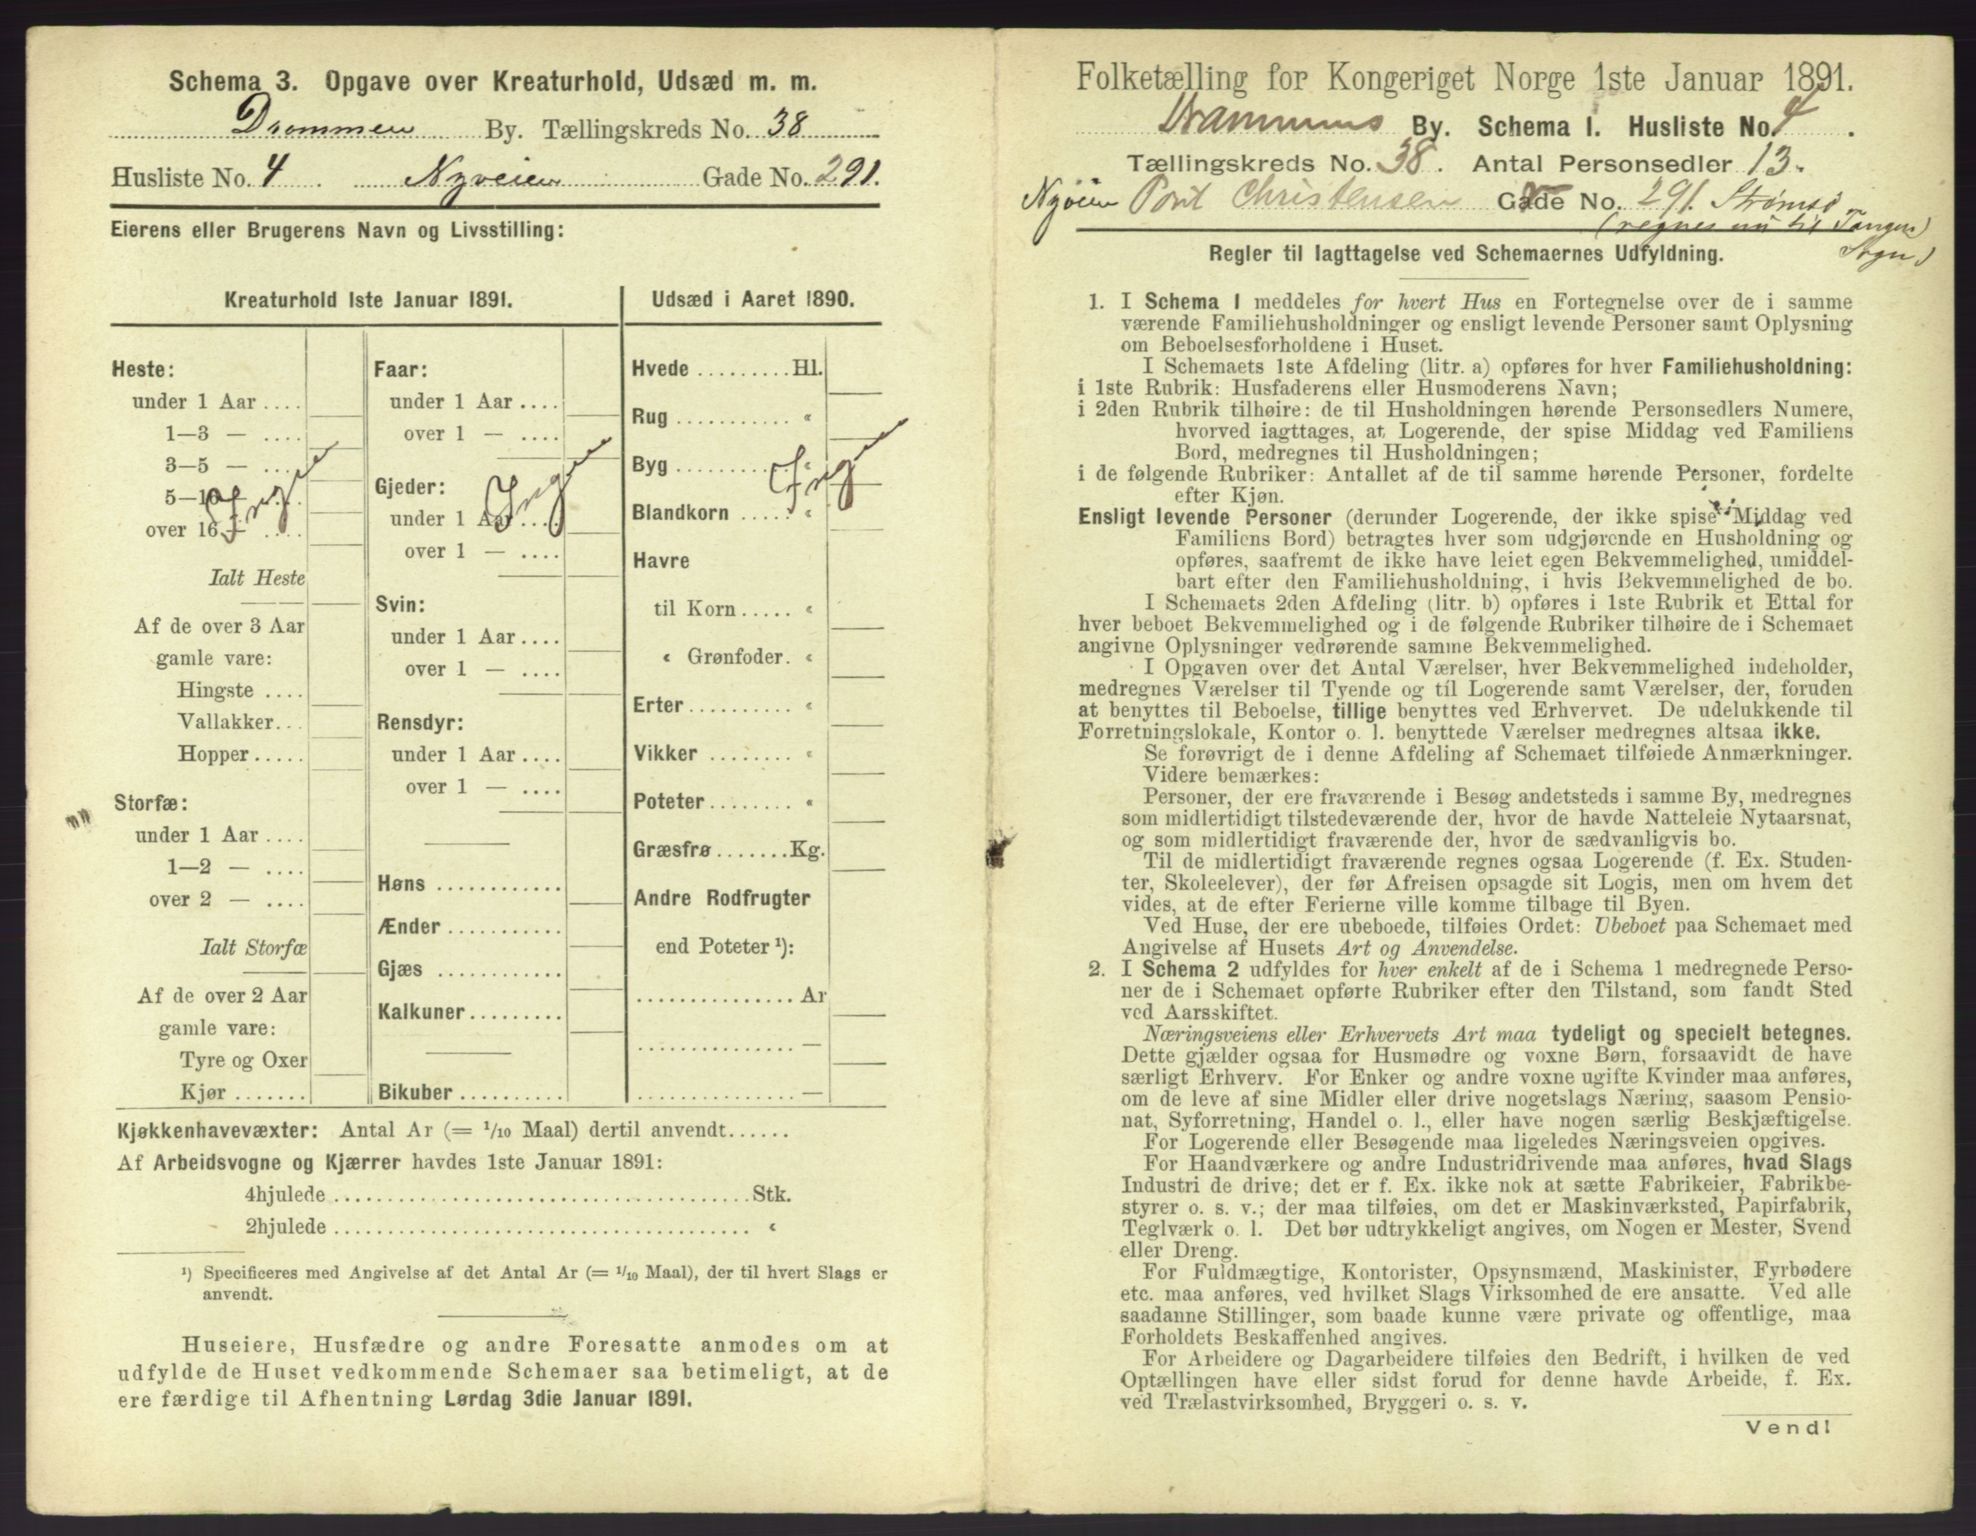 Schema 3. Opgave over Kreaturhold, Udsæd m. m.
Drammen By. Tællingskreds No. 38
Husliste No. 4 Nyveien Gade No. 291.
Eierens eller Brugerens Navn og Livsstilling:
Kreaturhold 1ste Januar 1891.
Heste:
under 1 Aar ....
1—3 — ....
3—5 — ....
5—16 — ....
over 16 — ....
Inge
Ialt Heste
Af de over 3 Aar
gamle vare:
Hingste ....
Vallakker...
Hopper.....
Storfæ:
under 1 Aar ....
1—2 — ....
over 2 — ....
Ialt Storfæ
Af de over 2 Aar
gamle vare:
Tyre og Oxer
Kjør .......
Faar:
under 1 Aar ....
over 1 — ....
Gjeder:
under 1 Aar ....
over 1 — ....
Inge
Svin:
under 1 Aar ....
over 1 — ....
Rensdyr:
under 1 Aar ....
over 1 — ....
Høns ............
Ænder ...........
Gjæs ............
Kalkuner.........
Bikuber ..........
Udsæd i Aaret 1890.
Hvede .........Hl.
Rug ........... «
Byg ........... «
Inge
Blandkorn ..... «
Havre
til Korn ..... «
« Grønfoder. «
Erter.......... «
Vikker ........ «
Poteter........ «
Græsfrø.......Kg.
Andre Rodfrugter
end Poteter ¹):
............... Ar
............... —
............... —
Kjøkkenhavevæxter: Antal Ar (= 1/10 Maal) dertil anvendt......
Af Arbeidsvogne og Kjærrer havdes 1ste Januar 1891:
4hjulede ........................................Stk.
2hjulede ........................................ «
¹) Specificeres med Angivelse af det Antal Ar (= 1/10 Maal), der til hvert Slags er
anvendt.
Huseiere, Husfædre og andre Foresatte anmodes om at
udfylde de Huset vedkommende Schemaer saa betimeligt, at de
ere færdige til Afhentning Lørdag 3die Januar 1891.
Folketælling for Kongeriget Norge 1ste Januar 1891.
Drammens By. Schema 1. Husliste No. 4.
Tællingskreds No. 38. Antal Personsedler 13.
Nyveien Christensen Gade No. 291. Strømsø
(regnes nu til Tangen
Sogn)
Regler til Iagttagelse ved Schemaernes Udfyldning.
1. I Schema 1 meddeles for hvert Hus en Fortegnelse over de i samme
værende Familiehusholdninger og ensligt levende Personer samt Oplysning
om Beboelsesforholdene i Huset.
I Schemaets 1ste Afdeling (litr. a) opføres for hver Familiehusholdning:
i 1ste Rubrik: Husfaderens eller Husmoderens Navn;
i 2den Rubrik tilhøire: de til Husholdningen hørende Personsedlers Numere,
hvorved iagttages, at Logerende, der spise Middag ved Familiens
Bord, medregnes til Husholdningen;
i de følgende Rubriker: Antallet af de til samme hørende Personer, fordelte
efter Kjøn.
Ensligt levende Personer (derunder Logerende, der ikke spise Middag ved
Familiens Bord) betragtes hver som udgjørende en Husholdning og
opføres, saafremt de ikke have leiet egen Bekvemmelighed, umiddel-
bart efter den Familiehusholdning, i hvis Bekvemmelighed de bo.
I Schemaets 2den Afdeling (litr. b) opføres i 1ste Rubrik et Ettal for
hver beboet Bekvemmelighed og i de følgende Rubriker tilhøire de i Schemaet
angivne Oplysninger vedrørende samme Bekvemmelighed.
I Opgaven over det Antal Værelser, hver Bekvemmelighed indeholder,
medregnes Værelser til Tyende og til Logerende samt Værelser, der, foruden
at benyttes til Beboelse, tillige benyttes ved Erhvervet. De udelukkende til
Forretningslokale, Kontor o. l. benyttede Værelser medregnes altsaa ikke.
Se forøvrigt de i denne Afdeling af Schemaet tilføiede Anmærkninger.
Videre bemærkes:
Personer, der ere fraværende i Besøg andetsteds i samme By, medregnes
som midlertidigt tilstedeværende der, hvor de havde Natteleie Nytaarsnat,
og som midlertidigt fraværende der, hvor de sædvanligvis bo.
Til de midlertidigt fraværende regnes ogsaa Logerende (f. Ex. Studen-
ter, Skoleelever), der før Afreisen opsagde sit Logis, men om hvem det
vides, at de efter Ferierne ville komme tilbage til Byen.
Ved Huse, der ere ubeboede, tilføies Ordet: Ubeboet paa Schemaet med
Angivelse af Husets Art og Anvendelse.
2. I Schema 2 udfyldes for hver enkelt af de i Schema 1 medregnede Perso-
ner de i Schemaet opførte Rubriker efter den Tilstand, som fandt Sted
ved Aarsskiftet.
Næringsveiens eller Erhvervets Art maa tydeligt og specielt betegnes.
Dette gjælder ogsaa for Husmødre og voxne Børn, forsaavidt de have
særligt Erhverv. For Enker og andre voxne ugifte Kvinder maa anføres,
om de leve af sine Midler eller drive nogetslags Næring, saasom Pensio-
nat, Syforretning, Handel o. l., eller have nogen særlig Beskjæftigelse.
For Logerende eller Besøgende maa ligeledes Næringsveien opgives.
For Haandværkere og andre Industridrivende maa anføres, hvad Slags
Industri de drive; det er f. Ex. ikke nok at sætte Fabrikeier, Fabrikbe-
styrer o. s. v.; der maa tilføies, om det er Maskinværksted, Papirfabrik,
Teglværk o. l. Det bør udtrykkeligt angives, om Nogen er Mester, Svend
eller Dreng.
For Fuldmægtige, Kontorister, Opsynsmænd, Maskinister, Fyrbødere
etc. maa anføres, ved hvilket Slags Virksomhed de ere ansatte. Ved alle
saadanne Stillinger, som baade kunne være private og offentlige, maa
Forholdets Beskaffenhed angives.
For Arbeidere og Dagarbeidere tilføies den Bedrift, i hvilken de ved
Optællingen have eller sidst forud for denne havde Arbeide, f. Ex.
ved Trælastvirksomhed, Bryggeri o. s. v.
Vend!